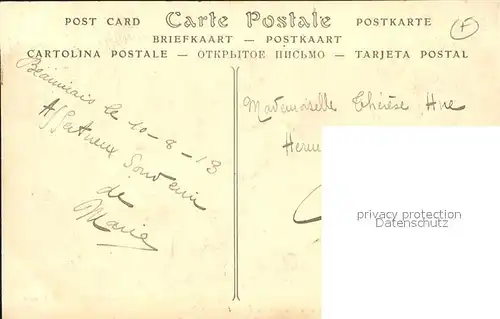 POST CARD Carte Postale POSTKARTE
BRIEFKAART — POSTKAART
CARTOLINA POSTALE — ОТКРЫТОЕ ПИСЬМО — TARJETA POSTAL
F
le 10-8-13
Affectueux Souvenir
de
Marie
Mademoiselle Thérèse Hue
privacy protection
www.ansichtskarten-lexikon.de